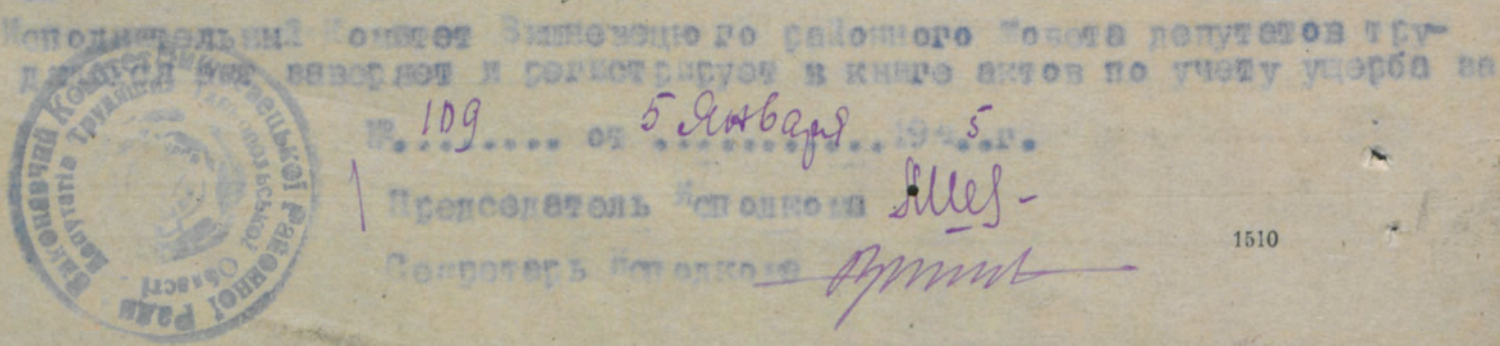 Исполнительный Комитет Вишневецкого районного Совета депутатов тру-
дящихся заверяет и регистрирует в книге актов по учету ущерба за
№ 109 от 5 Января 1945 г.
Председатель Исполкома
Секретарь Исполкома
1510
Виконавчий Комітет Вишневецької Районної Ради
Депутатів Трудящих Тернопільської Області